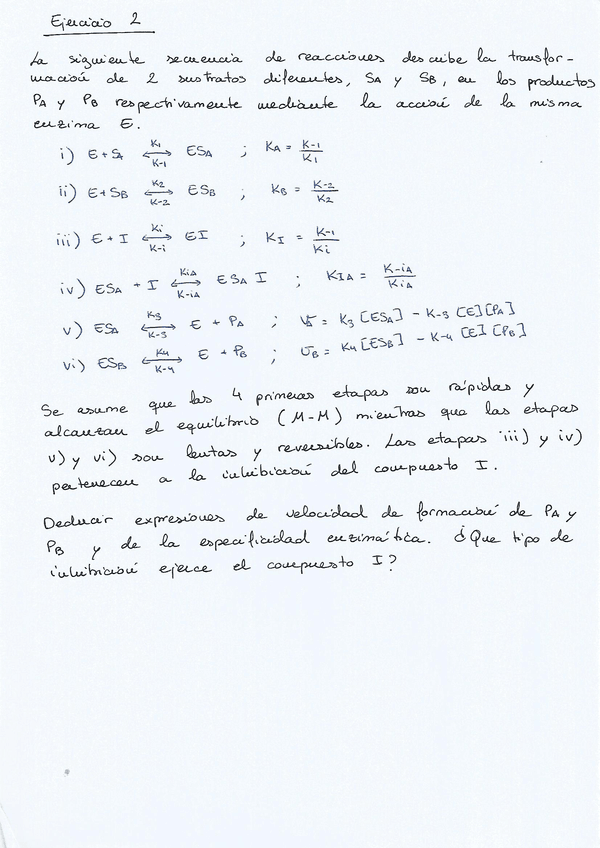 Ejercicio 2
La siguiente secuencia de reacciones describe la transfor-
mación de 2 sustratos diferentes, SA y SB, en los productos
PA y PB respectivamente mediante la acción de la misma
enzima E.
i) E + SA ⇄ (K1 / K-1) ESA ; KA = K-1 / K1
ii) E + SB ⇄ (K2 / K-2) ESB ; KB = K-2 / K2
iii) E + I ⇄ (Ki / K-i) EI ; KI = K-i / Ki
iv) ESA + I ⇄ (KiA / K-iA) ESA I ; KIA = K-iA / KiA
v) ESA ⇄ (K3 / K-3) E + PA ; VA = K3 [ESA] - K-3 [E][PA]
vi) ESB ⇄ (K4 / K-4) E + PB ; VB = K4 [ESB] - K-4 [E][PB]
Se asume que las 4 primeras etapas son rápidas y
alcanzan el equilibrio (M-M) mientras que las etapas
v) y vi) son lentas y reversibles. Las etapas iii) y iv)
pertenecen a la inhibición del compuesto I.
Deducir expresiones de velocidad de formación de PA y
PB y de la especificidad enzimática. ¿Que tipo de
inhibición ejerce el compuesto I?